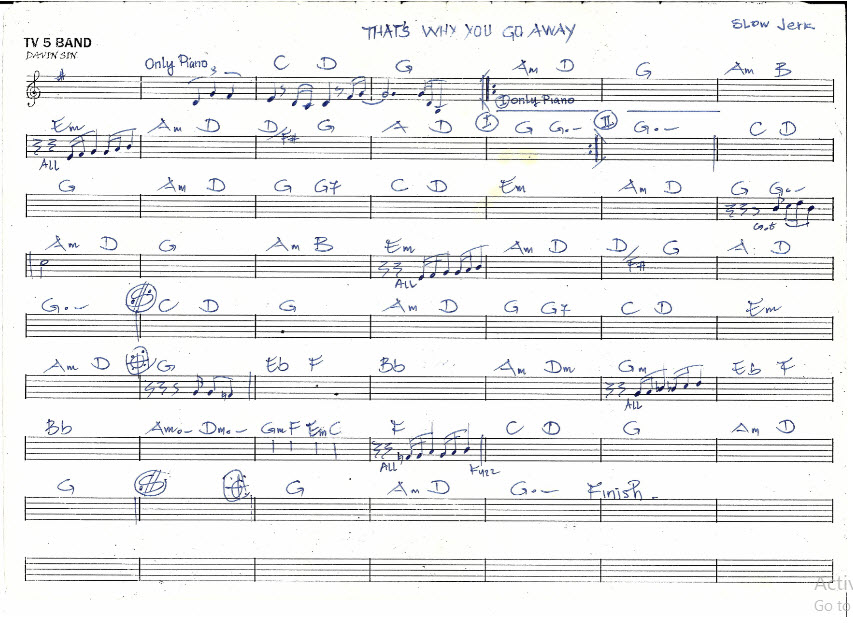 THAT'S WHY YOU GO AWAY
SLOW Jerk
TV 5 BAND
DAVIN SIN
Only Piano C D G Am D G Am B
I only Piano
Em Am D D/F# G A D I G G.— II G.— C D
ALL
G Am D G G7 C D Em Am D G G.—
Am D G Am B Em Am D D/F# G A D
ALL
G.— C D G Am D G G7 C D Em
Am D G Eb F Bb Am Dm Gm Eb F
ALL
Bb Am.— Dm.— Gm F Em C F C D G Am D
ALL
G G Am D G.— Finish
Activ
Go to